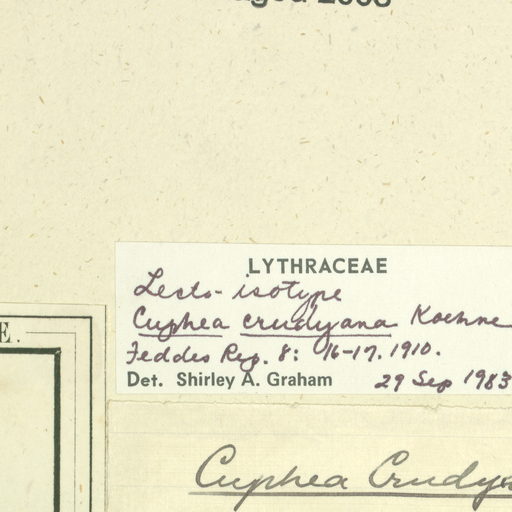 LYTHRACEAE
Lecto-isotype
Cuphea crudyana Koehne
Feddes Rep. 8: 16-17. 1910.
Det. Shirley A. Graham 29 Sep 1983
E.
Cuphea Crudya